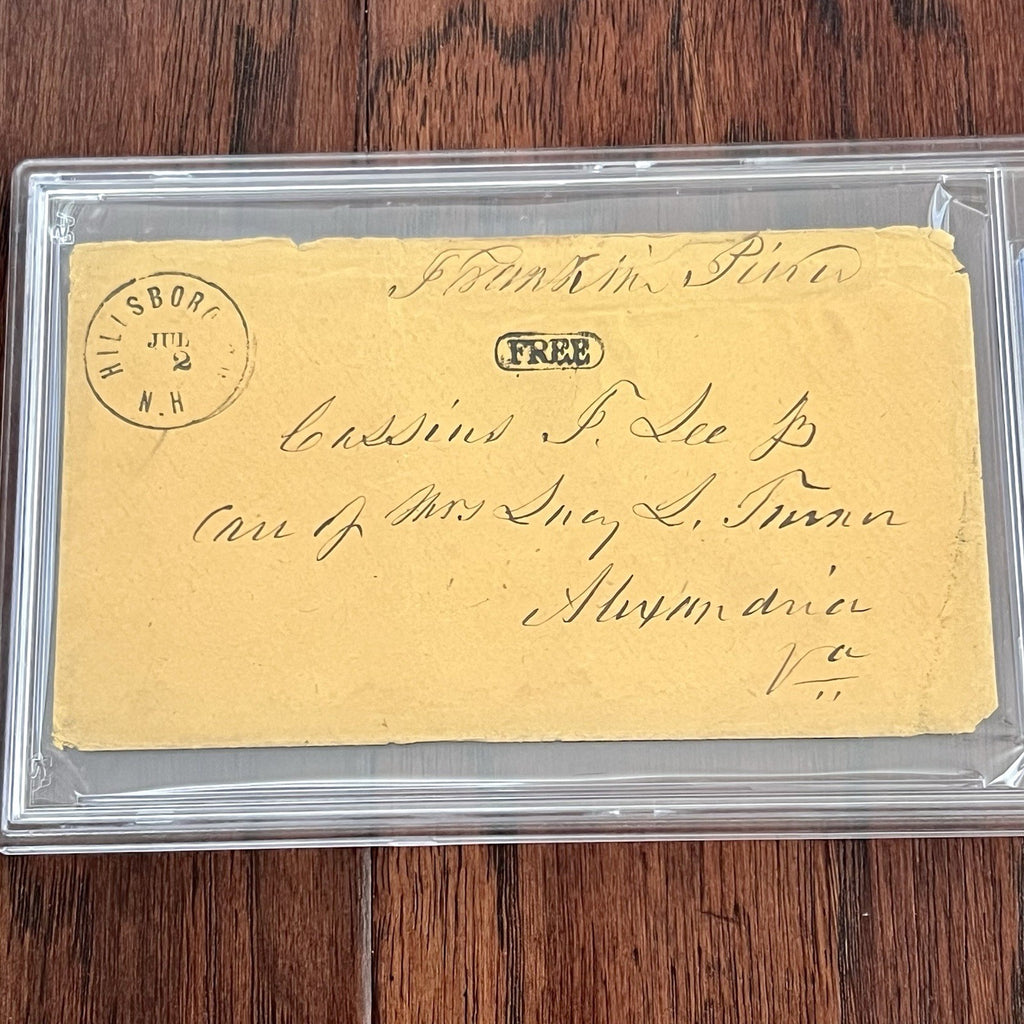 Franklin Pierce
HILLSBORO
JUL
2
N.H
FREE
Cassius F. Lee Jr
Care of Mrs Lucy L. Turner
Alexandria
Va